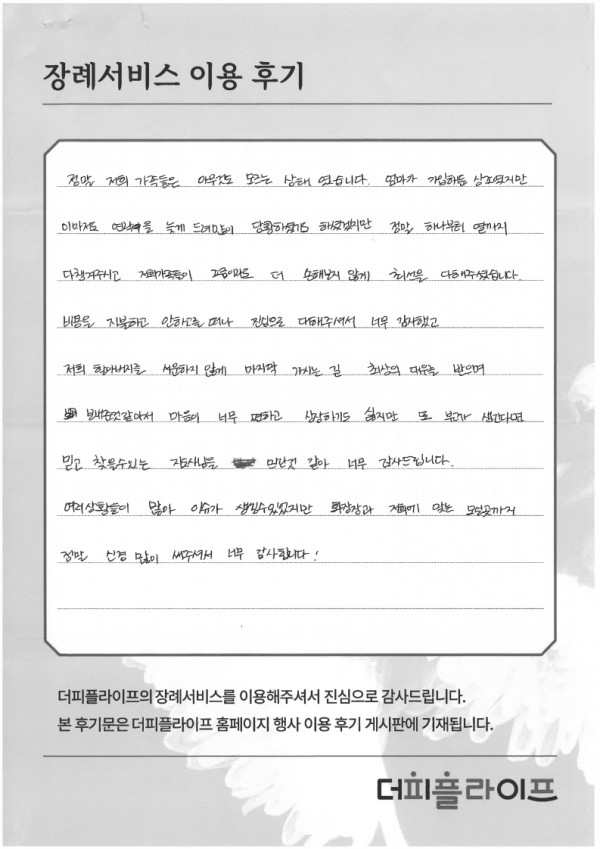 장례서비스 이용 후기
정말 저희 가족들은 아무것도 모르는 상태 였습니다. 엄마가 가입하는 상조였지만
이마저도 연락을 늦게 드려많이 당황하셨기도 하셨겠지만 정말 하나부터 열까지
다챙겨주시고 저희가족들이 조금이라도 더 손해보지 않게 최선을 다해주셨습니다.
비용을 지불하고 안하고를 떠나 진심으로 다해주셔서 너무 감사했고
저희 할아버지를 서운하지 않게 마지막 가시는 길 최상의 대우를 받으며
보내준것같아서 마음이 너무 편하고 상상하기도 싫지만 또 부고가 생긴다면
믿고 찾을수있는 지도사님을 만난것 같아 너무 감사드립니다.
여러상황들이 많아 이슈가 생길수있었지만 화장장과 저희에 맞는 모실곳까지
정말 신경 많이 써주셔서 너무 감사합니다!
더피플라이프의 장례서비스를 이용해주셔서 진심으로 감사드립니다.
본 후기문은 더피플라이프 홈페이지 행사 이용 후기 게시판에 기재됩니다.
더피플라이프